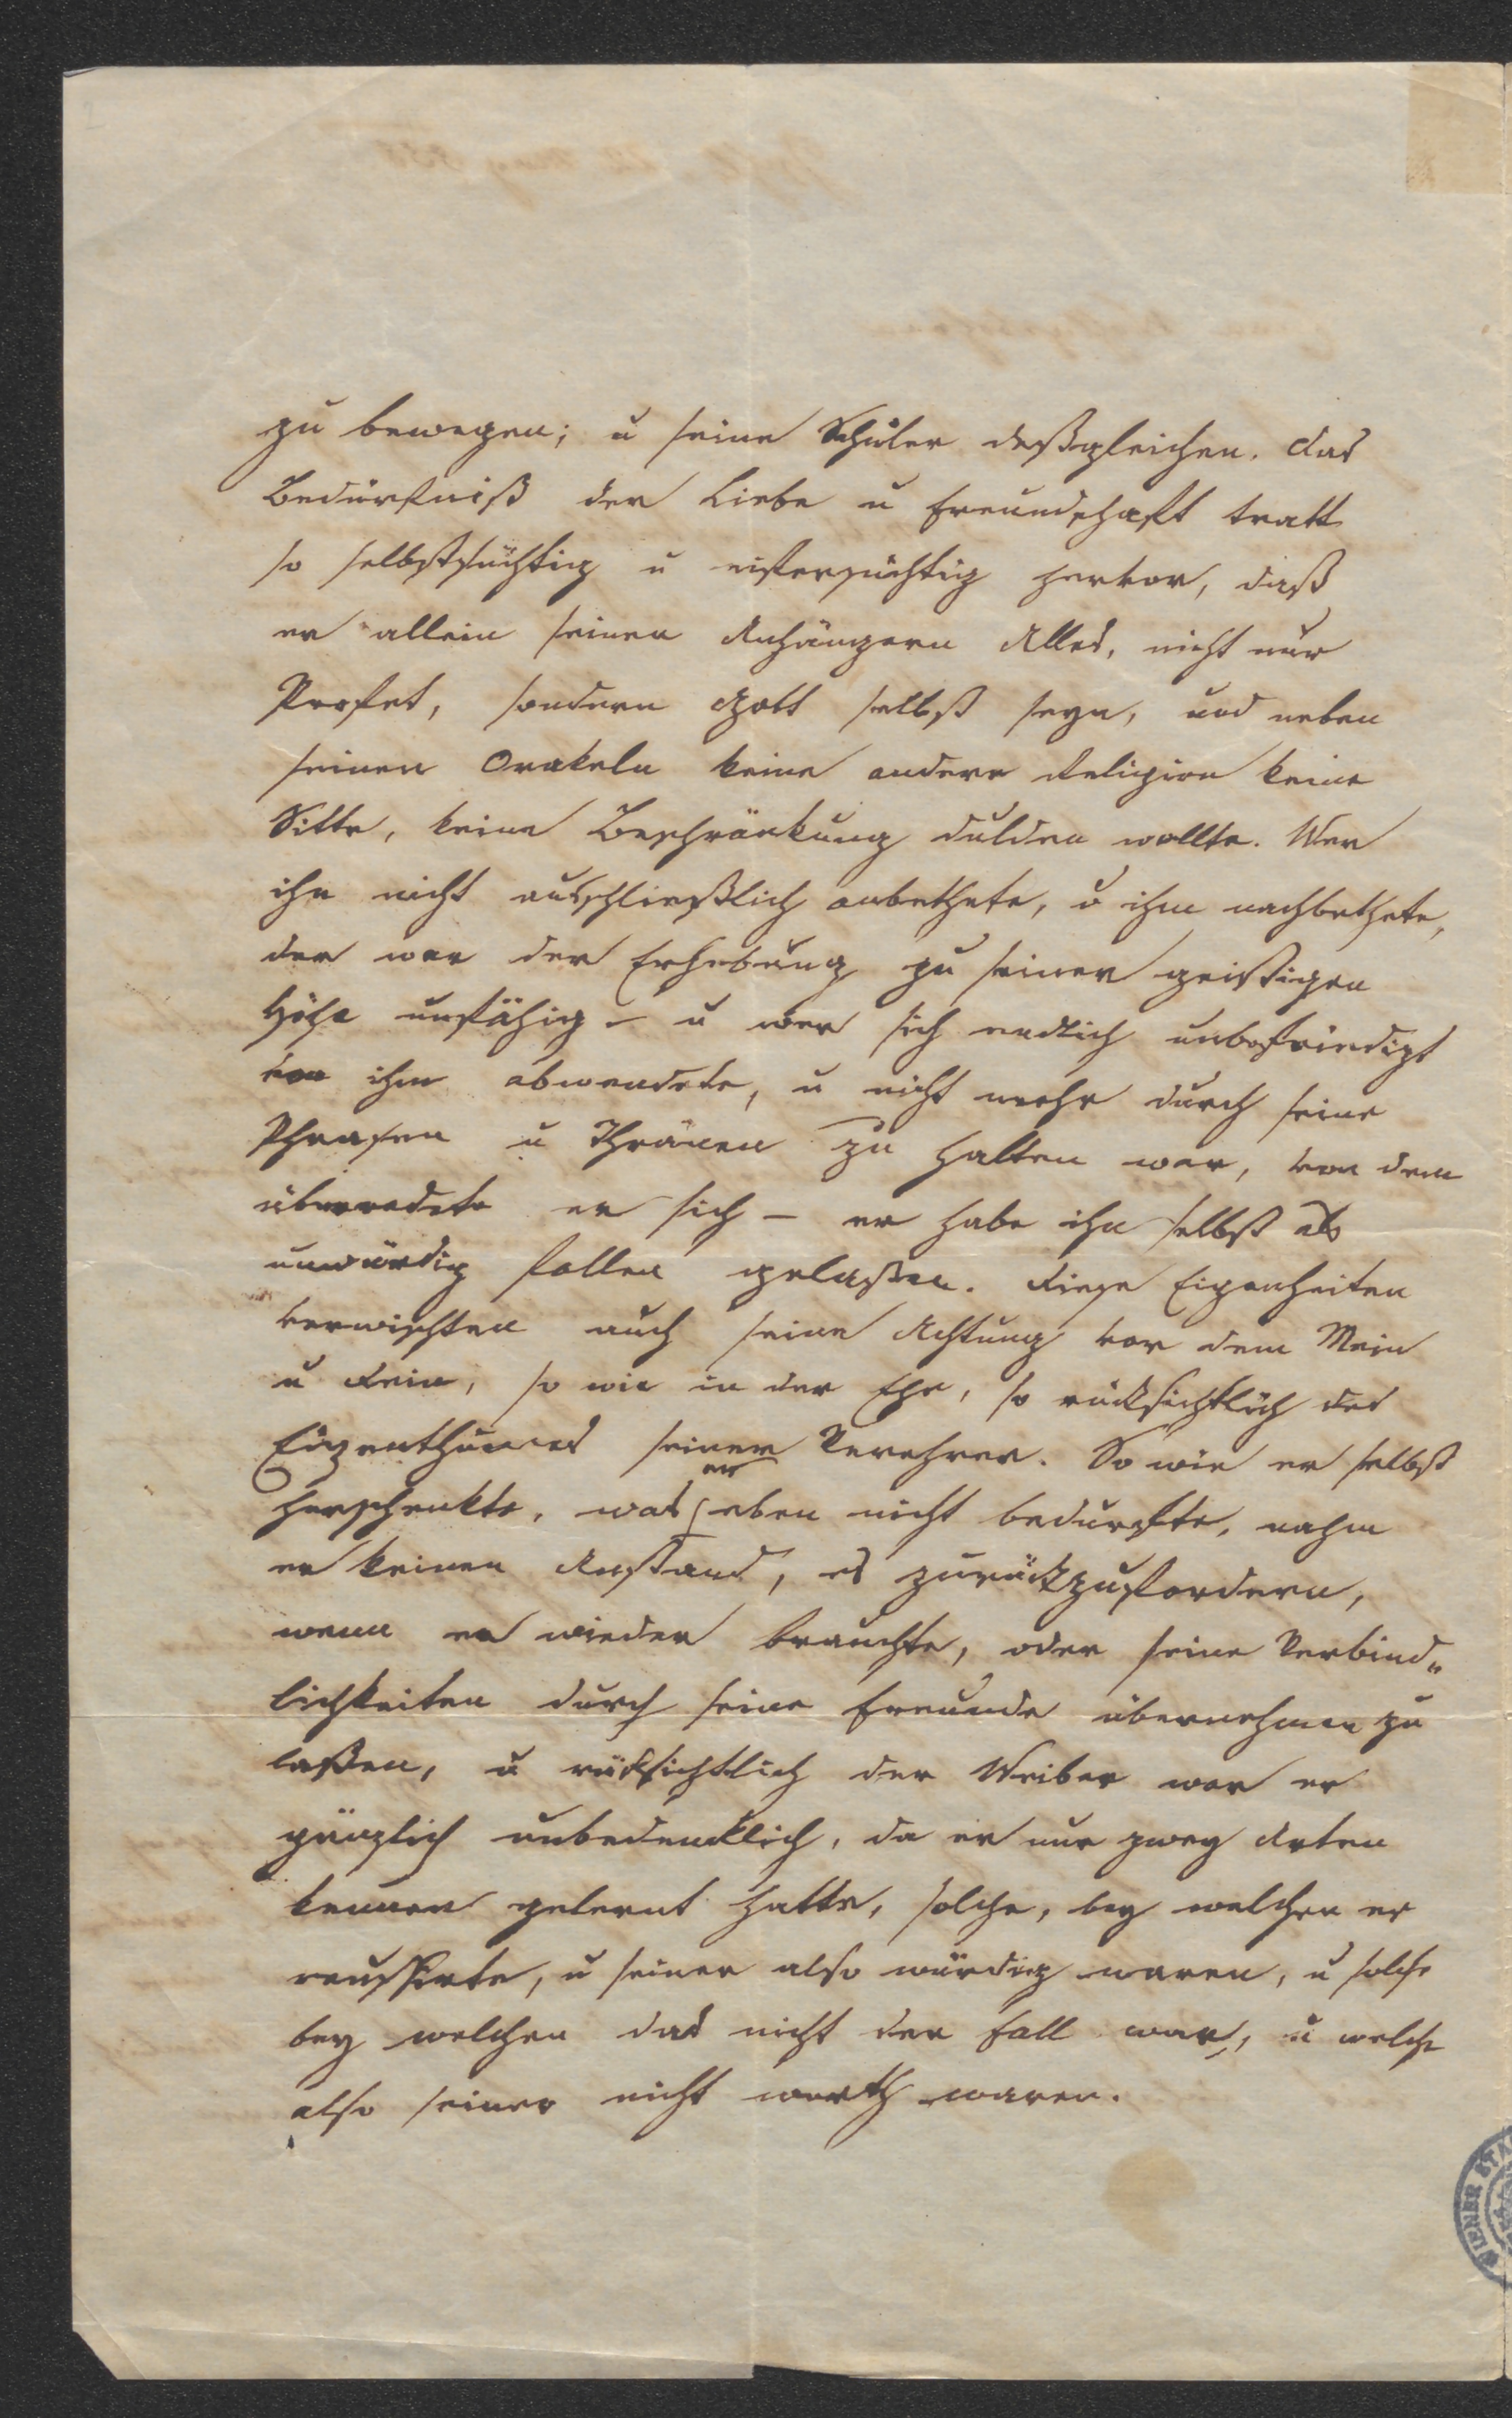 zu bewegen; u seine Schüler deßgleichen. Das
Bedürfniß der Liebe u Freundschaft tratt
so selbstsüchtig u eifersüchtig hervor, daß
er allein seinen Anhängern Alles, nicht nur
Profet, sondern Gott selbst seyn, und neben
seinen Orakeln keine andere Religion keine
Sitte, keine Beschränkung dulden wollte. Wer
ihn nicht ausschließlich anbethete, u ihm nachbethete,
der war der Erhebung zu seiner geistigen
Höhe unfähig – u wer sich endlich unbefriedigt
von ihm abwendete, u nicht mehr durch seine
Phrasen u Thränen zu halten war, von dem
überredete er sich – er habe ihn selbst als
unwürdig fallen gelaßen. Diese Eigenheiten
verwischten auch seine Achtung vor dem Mein
u Dein, so wie in der Ehe, so rücksichtlich des
Eigenthumes seiner Verehrer. So wie er selbst
herschenkte, was er eben nicht bedurfte, nahm
er keinen Anstand, es zurückzufordern,
wenn er wieder brauchte, oder seine Verbind„
lichkeiten durch seine Freunde übernehmen zu
laßen, u rücksichtlich der Weiber war er
gänzlich unbedencklich, da er nur zwey Arten
kennen gelernt hatte, solche, bey welchen er
reussirte, u seiner also würdig waren, u solche
bey welchen das nicht der Fall war, u welche
also seiner nicht werth waren.
WIENER STA